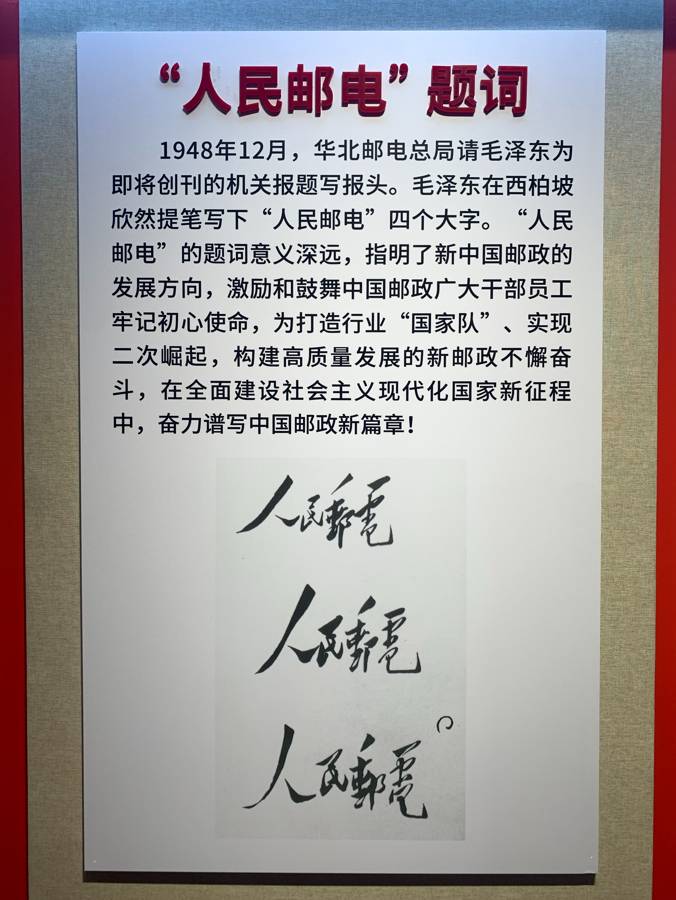 “人民邮电”题词
1948年12月，华北邮电总局请毛泽东为
即将创刊的机关报题写报头。毛泽东在西柏坡
欣然提笔写下“人民邮电”四个大字。“人民
邮电”的题词意义深远，指明了新中国邮政的
发展方向，激励和鼓舞中国邮政广大干部员工
牢记初心使命，为打造行业“国家队”、实现
二次崛起，构建高质量发展的新邮政不懈奋
斗，在全面建设社会主义现代化国家新征程
中，奋力谱写中国邮政新篇章！
人民郵電
人民郵電
人民郵電